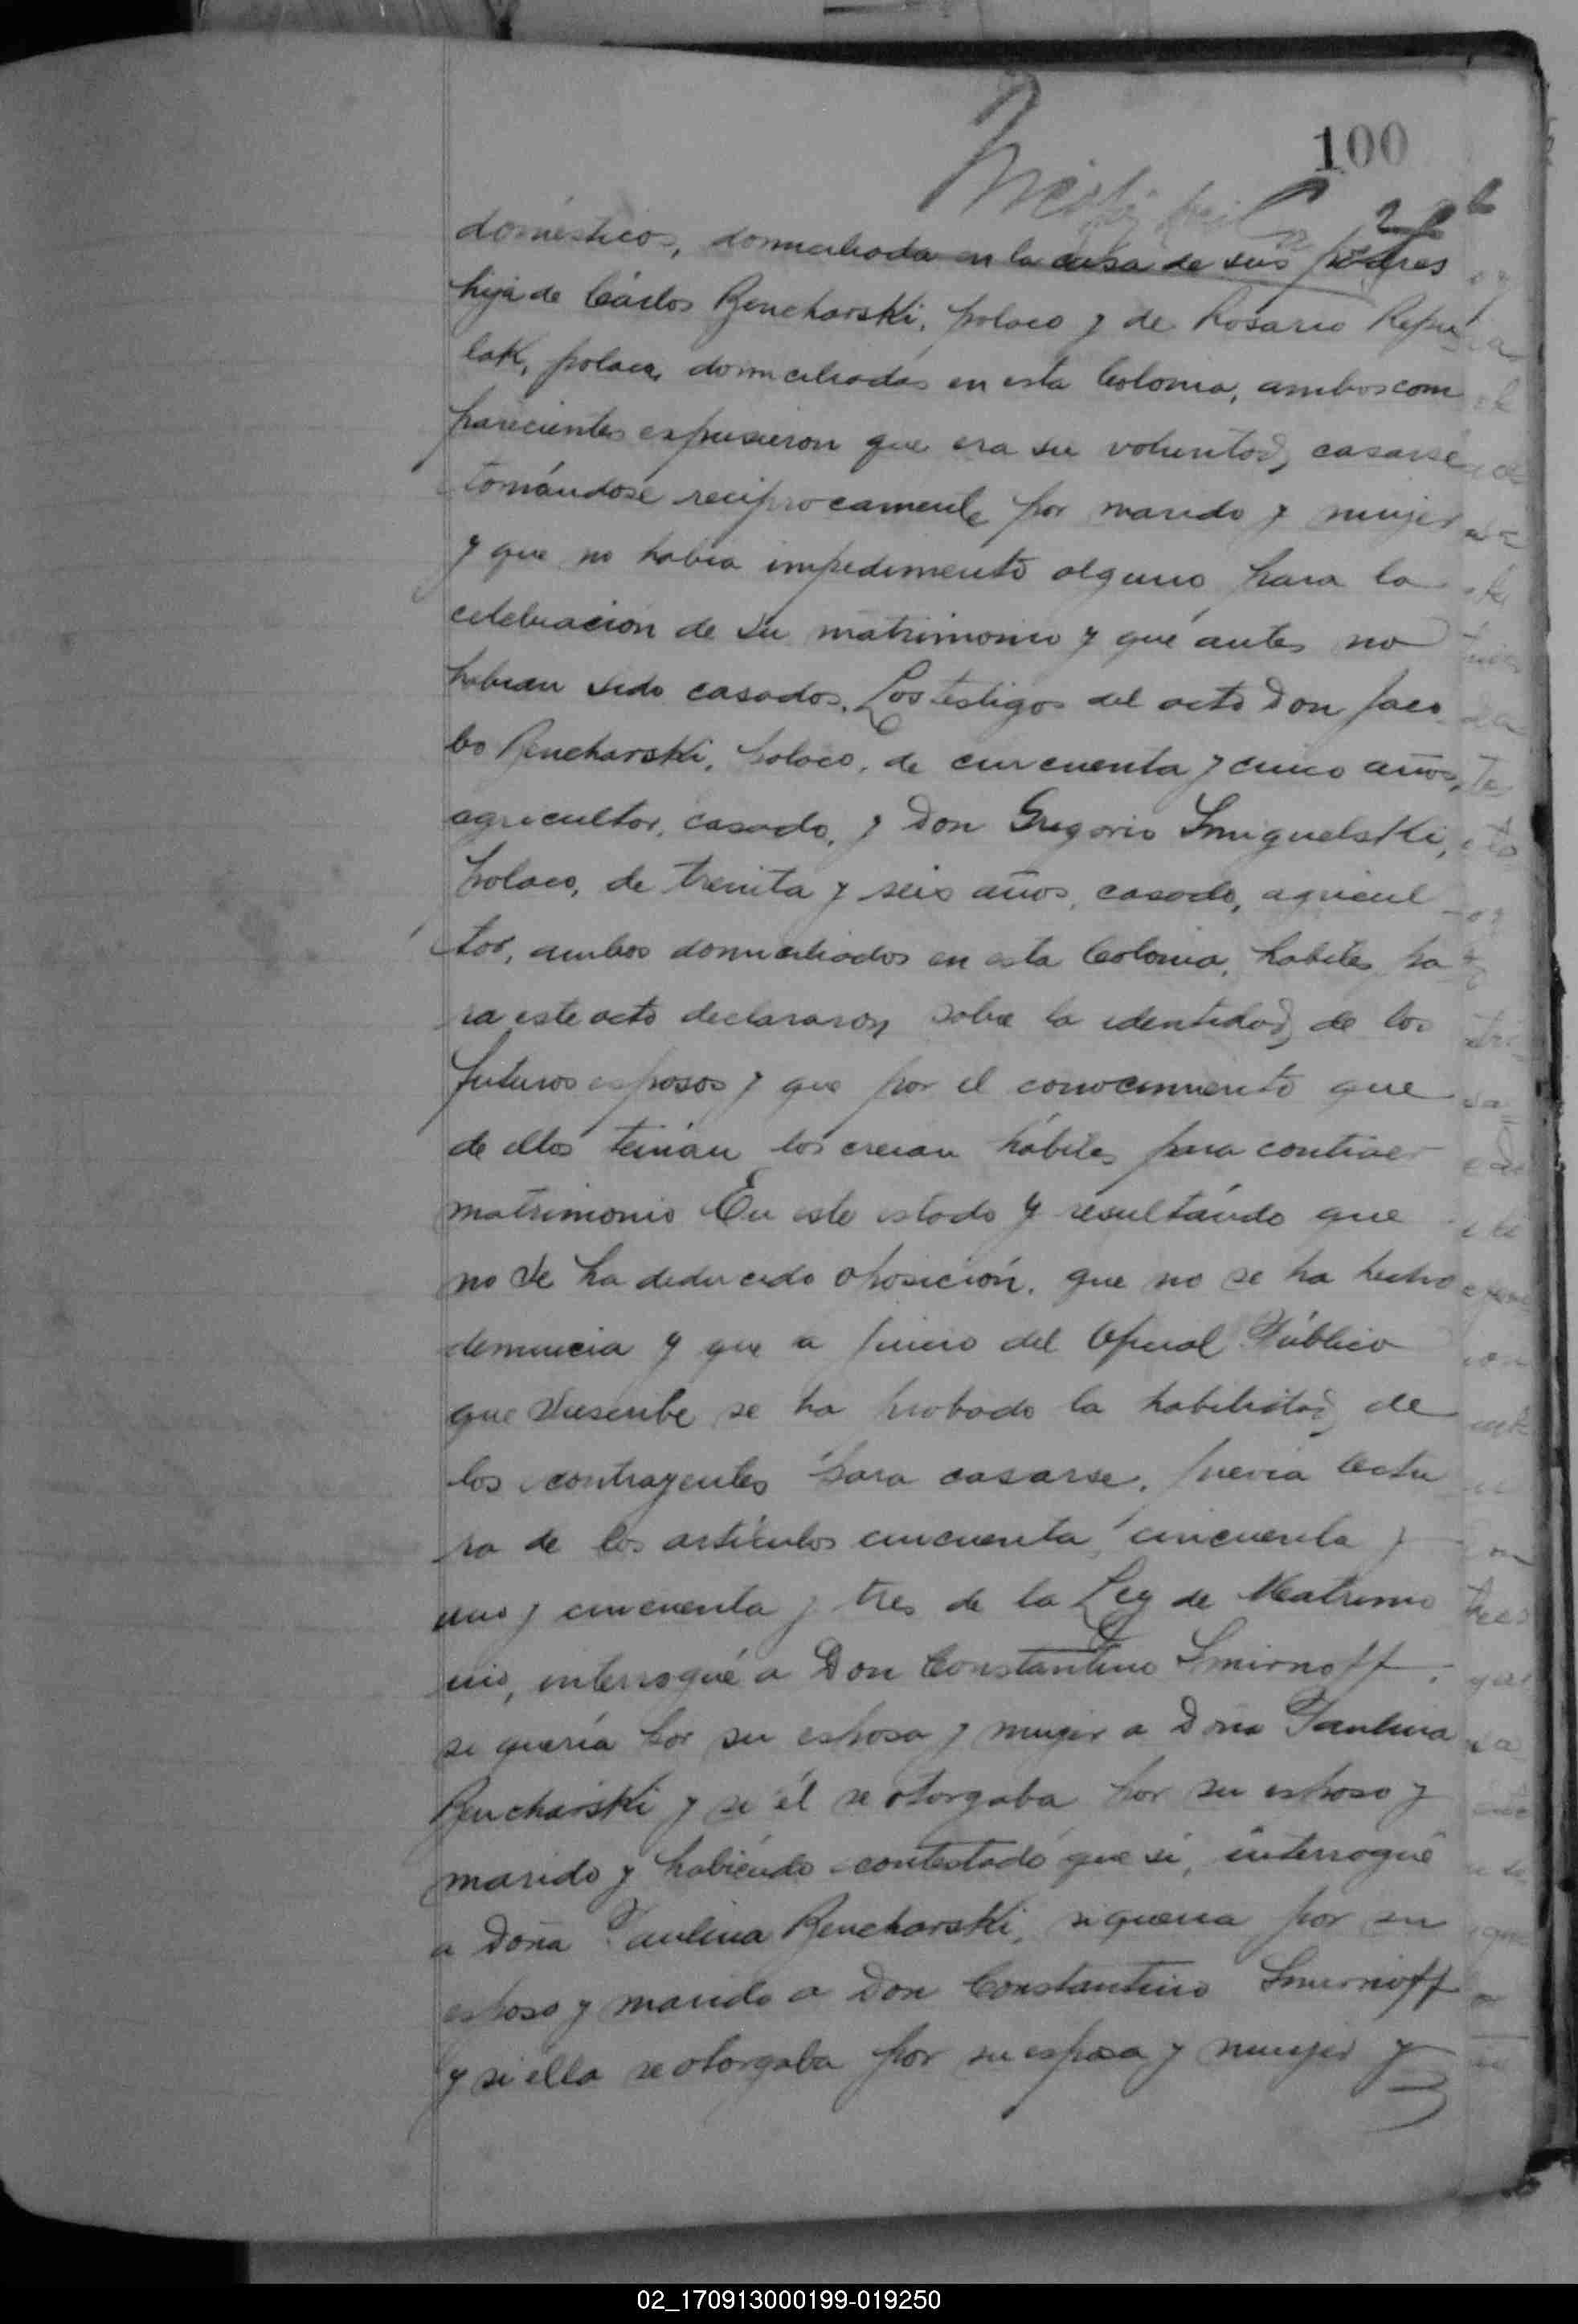 100
domésticos, domiciliada en la casa de sus padres
hija de Cárlos Bencharski, polaco y de Rosario Repu
lak, polaca, domiciliadas en esta Colonia, ambos com
parecientes expusieron que era su voluntad, casarse
tomándose recíprocamente por marido y mujer
y que no habia impedimento alguno para la
celebración de su matrimonio y que antes no
habian sido casados. Los testigos del acto Don Jaco
bo Bencharski, polaco, de cincuenta y cinco años,
agricultor, casado, y Don Gregorio Smiguelski,
polaco, de treinta y seis años, casado, agricul
tor, ambos domiciliados en esta Colonia, habiles pa
ra este acto declararon sobre la identidad, de los
futuros esposos y que por el conocimiento que
de ellos tenían los creían hábiles para contraer
matrimonio En este estado y resultándo que
no se ha deducido oposición, que no se ha hecho
denuncia y que a juicio del Oficial Público
que suscribe se ha probado la habilidad, de
los contrayentes para casarse, previa lectu
ra de los artículos cincuenta, cincuenta y
uno y cincuenta y tres de la Ley de Matrimo
nio, interrogué a Don Constantino Smirnoff,
si quería por su esposa y mujer a Doña Paulina
Bencharski y si él se otorgaba por su esposo y
marido y habiéndo contestado que si, interrogué
a Doña Paulina Bencharski, si queria por su
esposo y marido a Don Constantino Smirnoff
y si ella se otorgaba por su esposa y mujer y
02_170913000199-019250